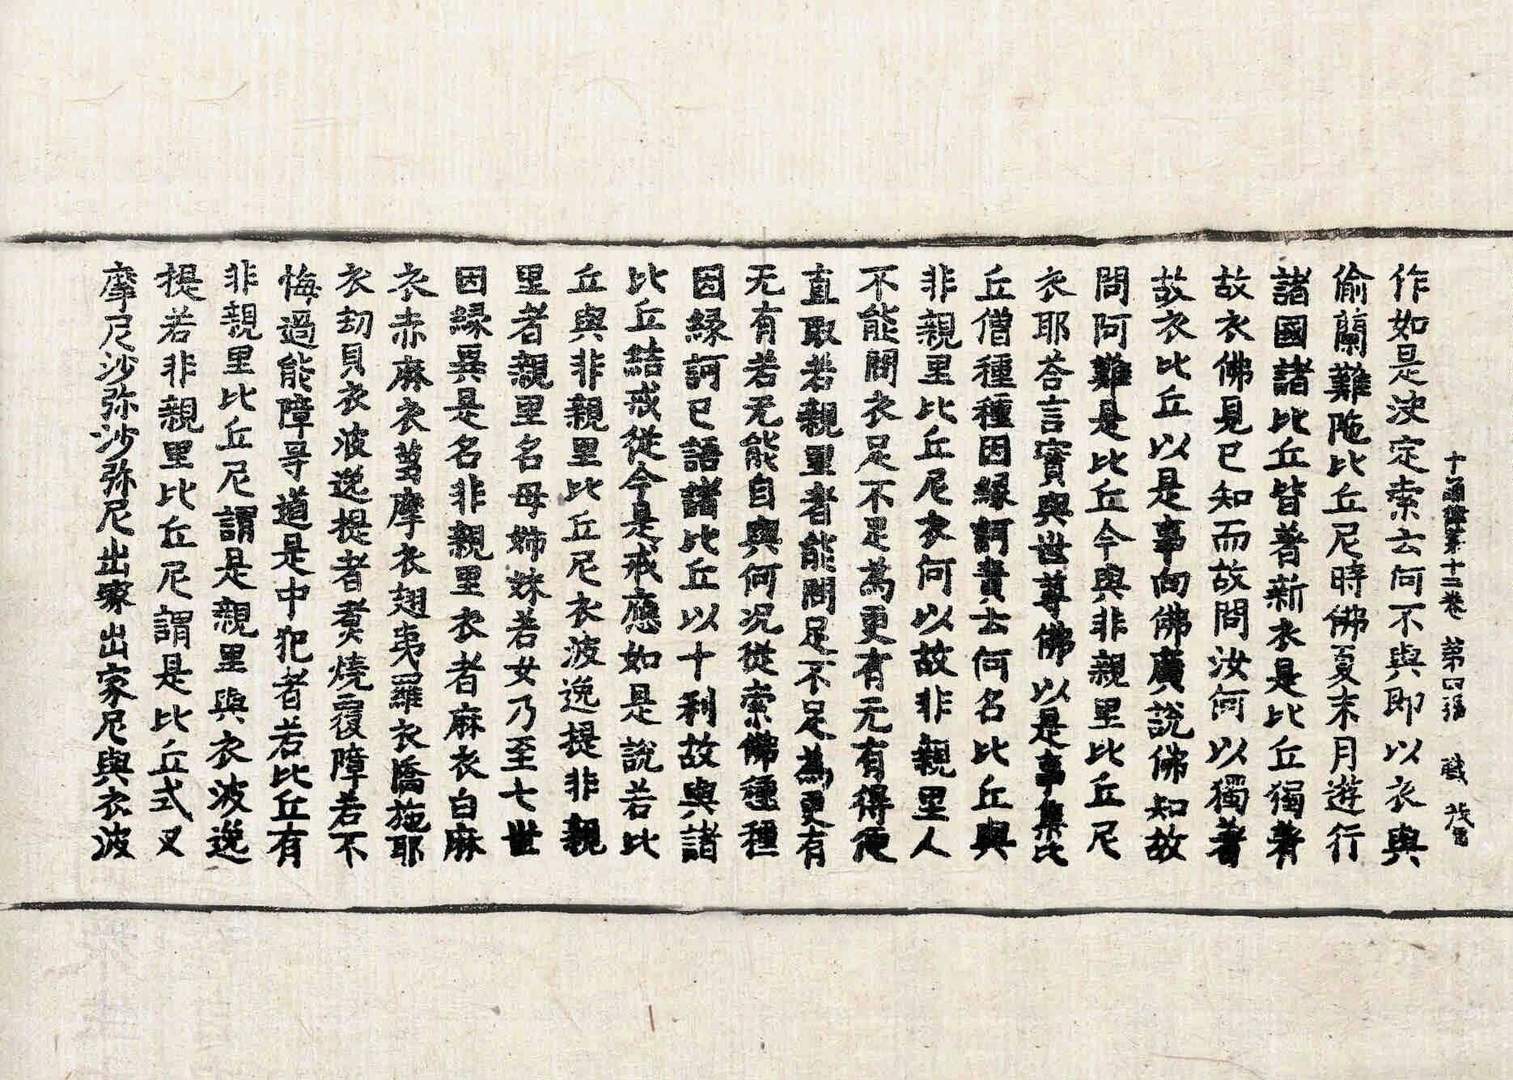 十誦律第十二卷 第四張 職
作如是決定索云何不與即以衣與
偷蘭難陁比丘尼時佛夏末月遊行
諸國諸比丘皆著新衣是比丘獨著
故衣佛見已知而故問汝何以獨著
故衣比丘以是事向佛廣說佛知故
問阿難是比丘今與非親里比丘尼
衣耶荅言實與世尊佛以是事集比
丘僧種種因緣訶責云何名比丘與
非親里比丘尼衣何以故非親里人
不能問衣足不足為更有无有得便
直取若親里者能問足不足為更有
无有若无能自與何况從索佛種種
因緣訶已語諸比丘以十利故與諸
比丘結戒從今是戒應如是說若比
丘與非親里比丘尼衣波逸提非親
里者親里名母姊妹若女乃至七世
因緣異是名非親里衣者麻衣白麻
衣赤麻衣芻摩衣翅夷羅衣憍施耶
衣劫貝衣波逸提者煑燒覆障若不
悔過能障㝵道是中犯者若比丘有
非親里比丘尼謂是親里與衣波逸
提若非親里比丘尼謂是比丘式叉
摩尼沙弥沙弥尼出家出家尼與衣波